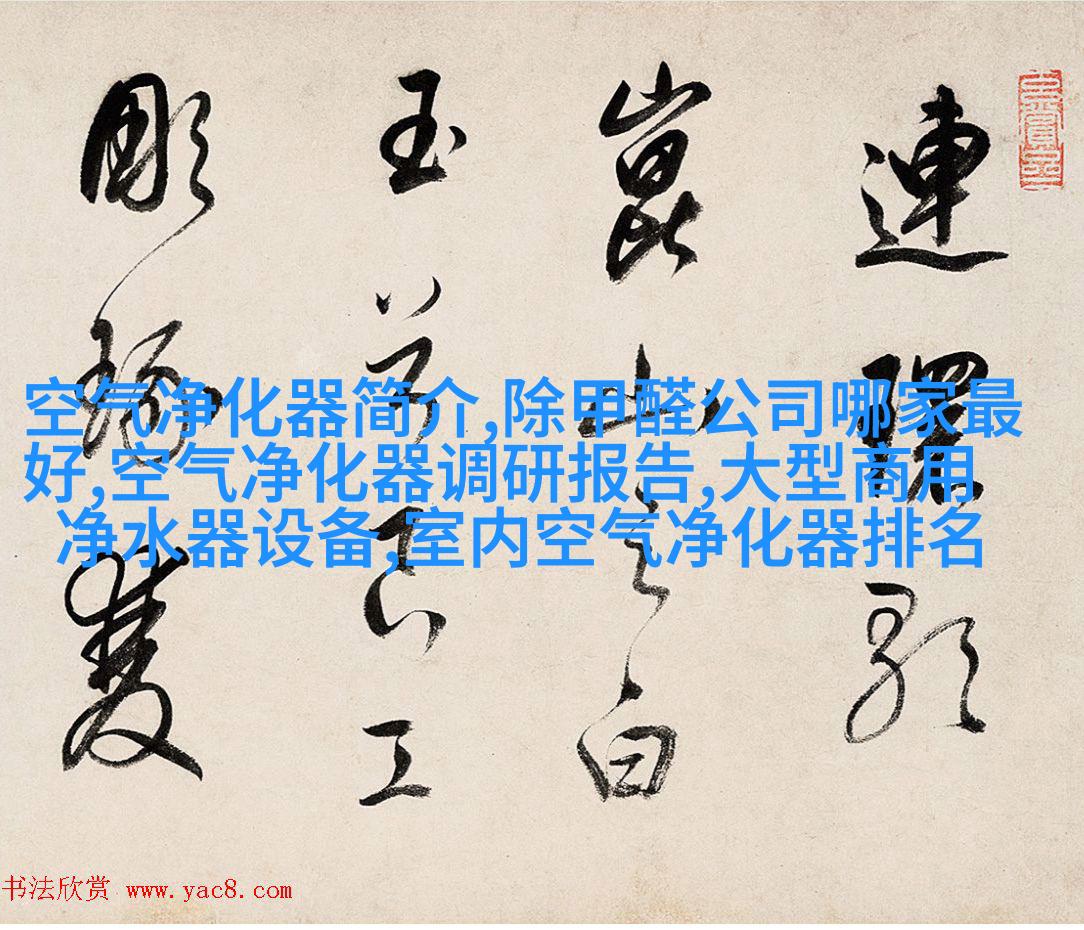 空气净化器简介,除甲醛公司哪家最
好,空气净化器调研报告,大型商用
净水器设备,室内空气净化器排名
連環歌
崑山之白
玉良工
彫琢雙
书法欣赏 www.yac8.com